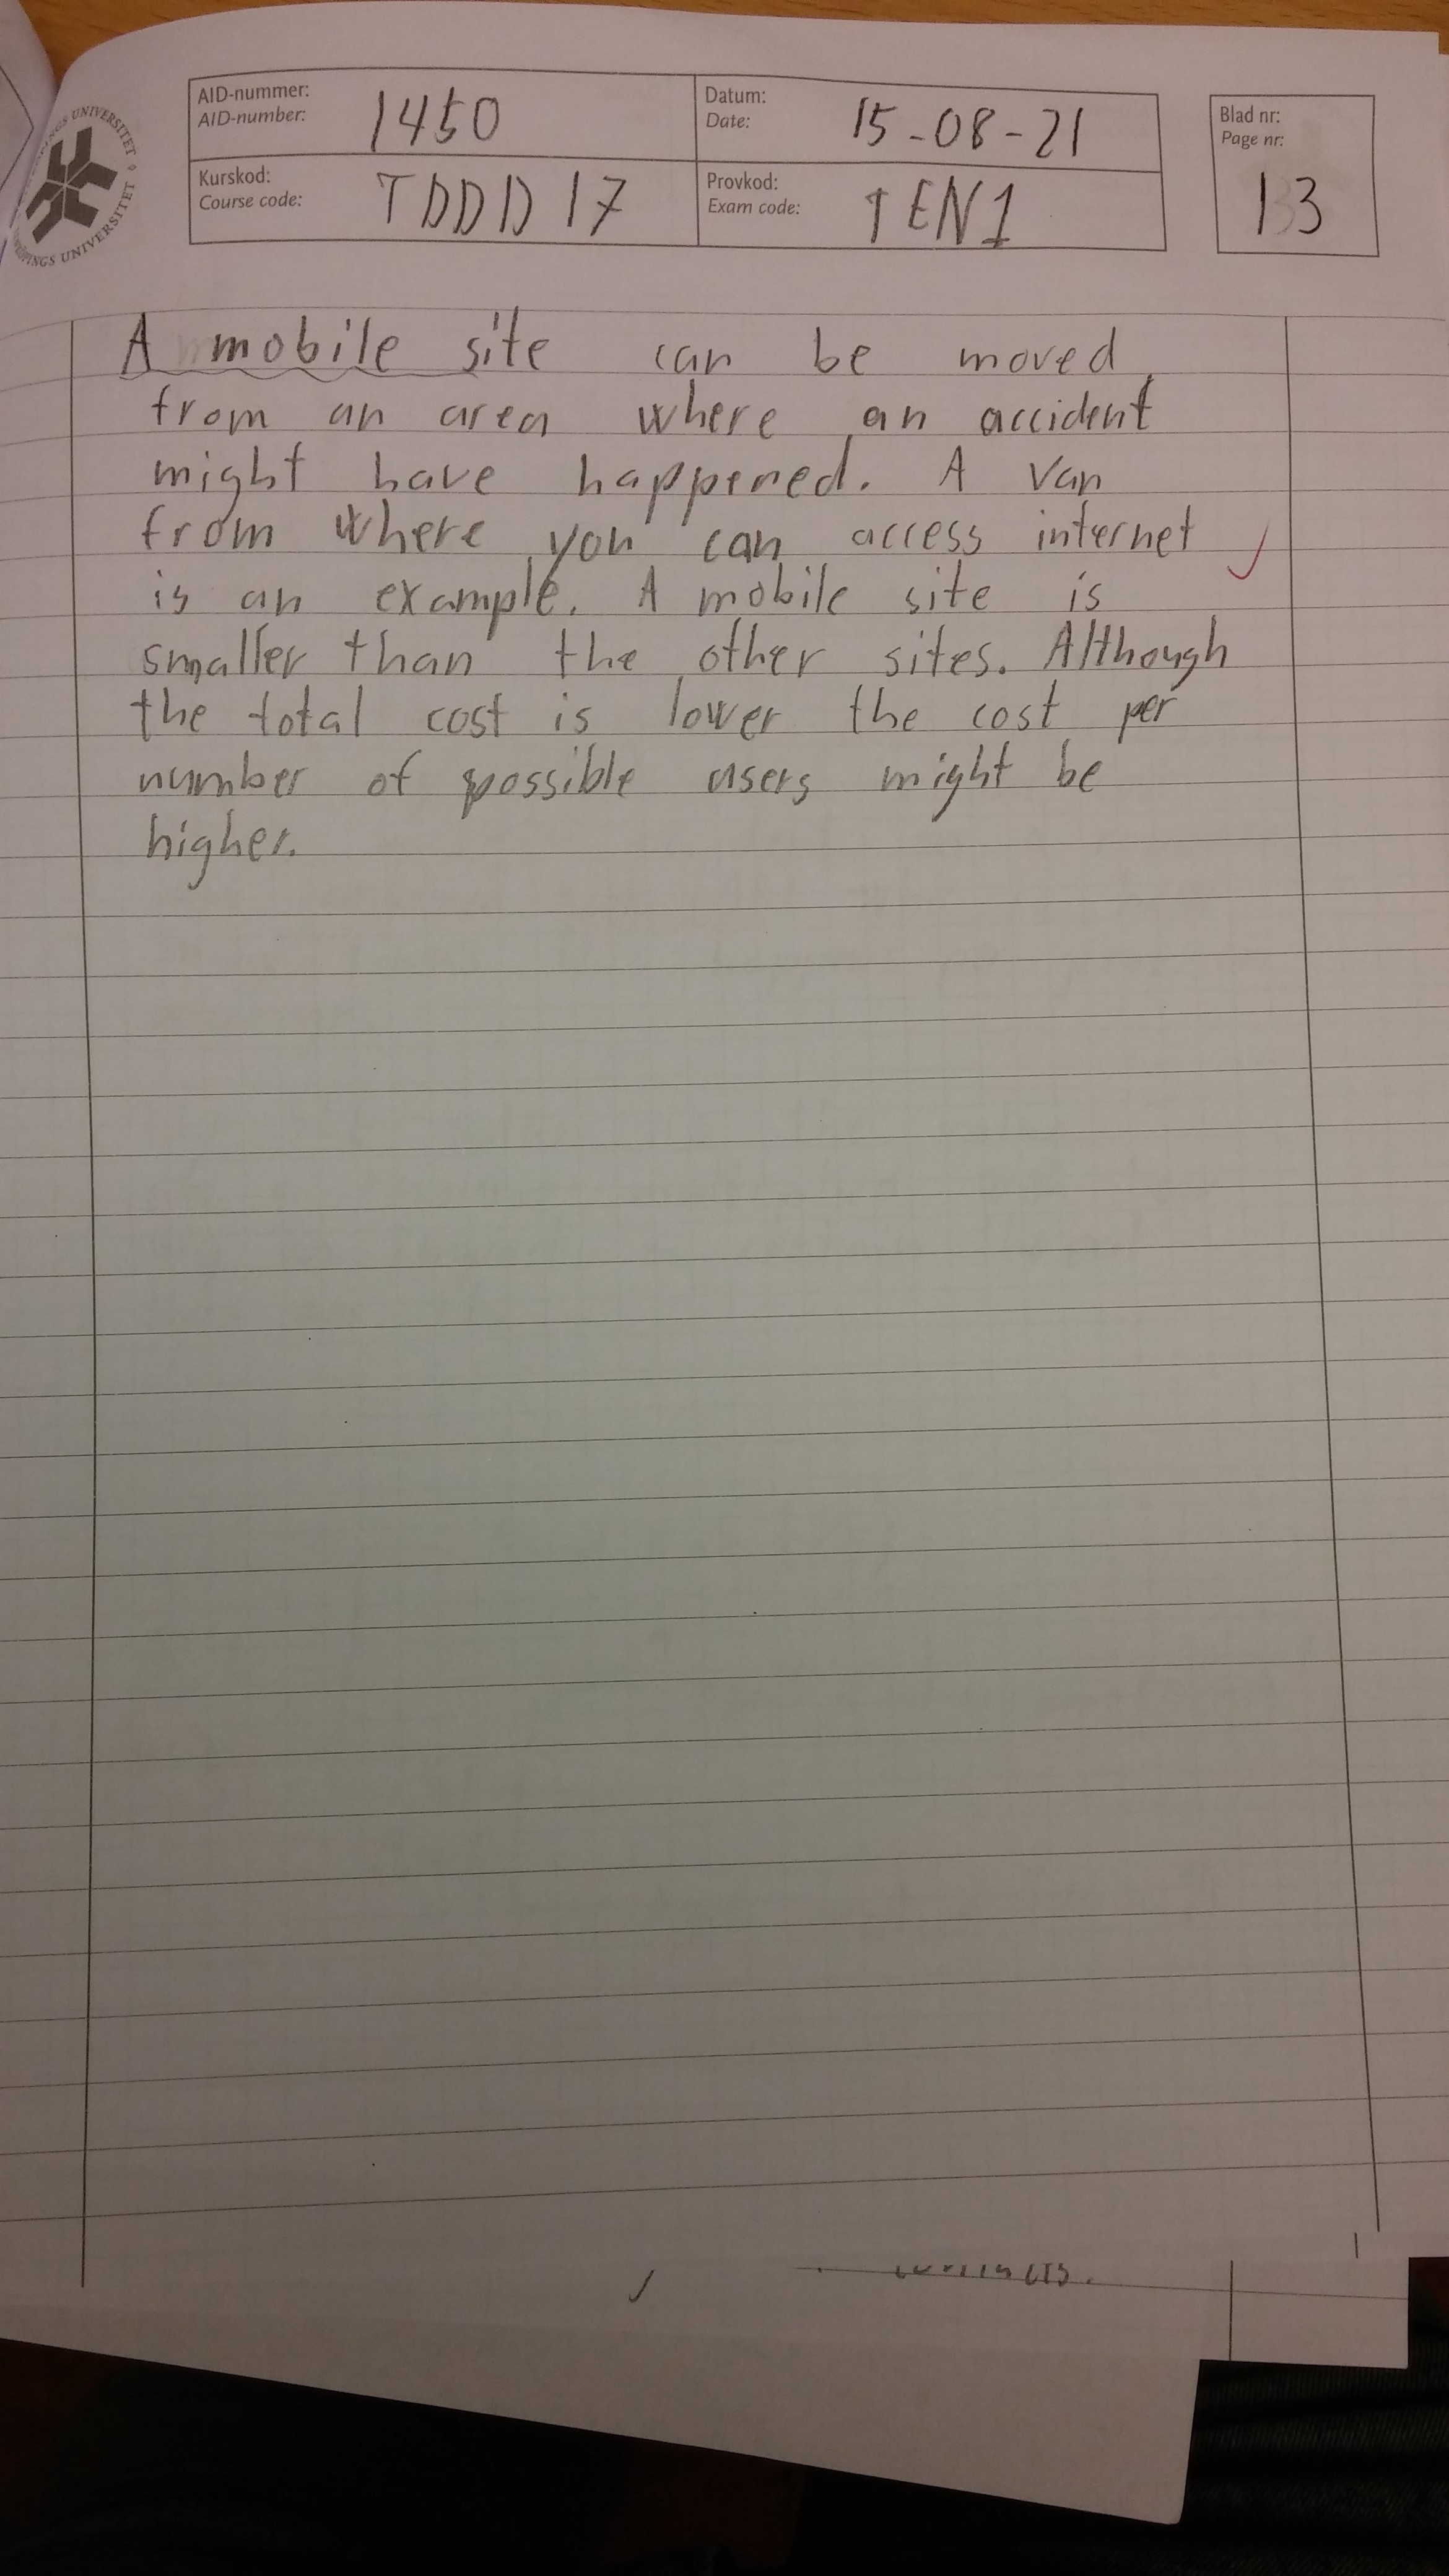 AID-nummer:
AID-number:
1450
Datum:
Date:
15-08-21
Blad nr:
Page nr:
13
Kurskod:
Course code:
TDDD17
Provkod:
Exam code:
TEN1
UNIVERSITET
UNIVERSITET
A mobile site can be moved
from an area where an accident
might have happened. A van
from where you can access internet
is an example. A mobile site is
smaller than the other sites. Although
the total cost is lower the cost per
number of possible users might be
higher.